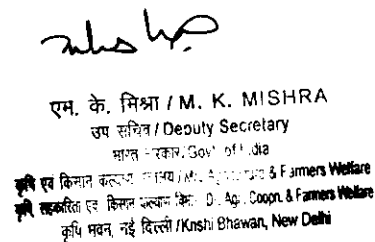 एम. के. मिश्रा / M. K. MISHRA
उप सचिव / Deputy Secretary
भारत सरकार/Gov of dia
कृषि एवं किसान कल्याण & Farmers Welfare
कृषि सहकारिता एवं किसान कल्याण Coopn. & Farmers Welfare
कृषि भवन, नई दिल्ली /Krishi Bhawan, New Delhi